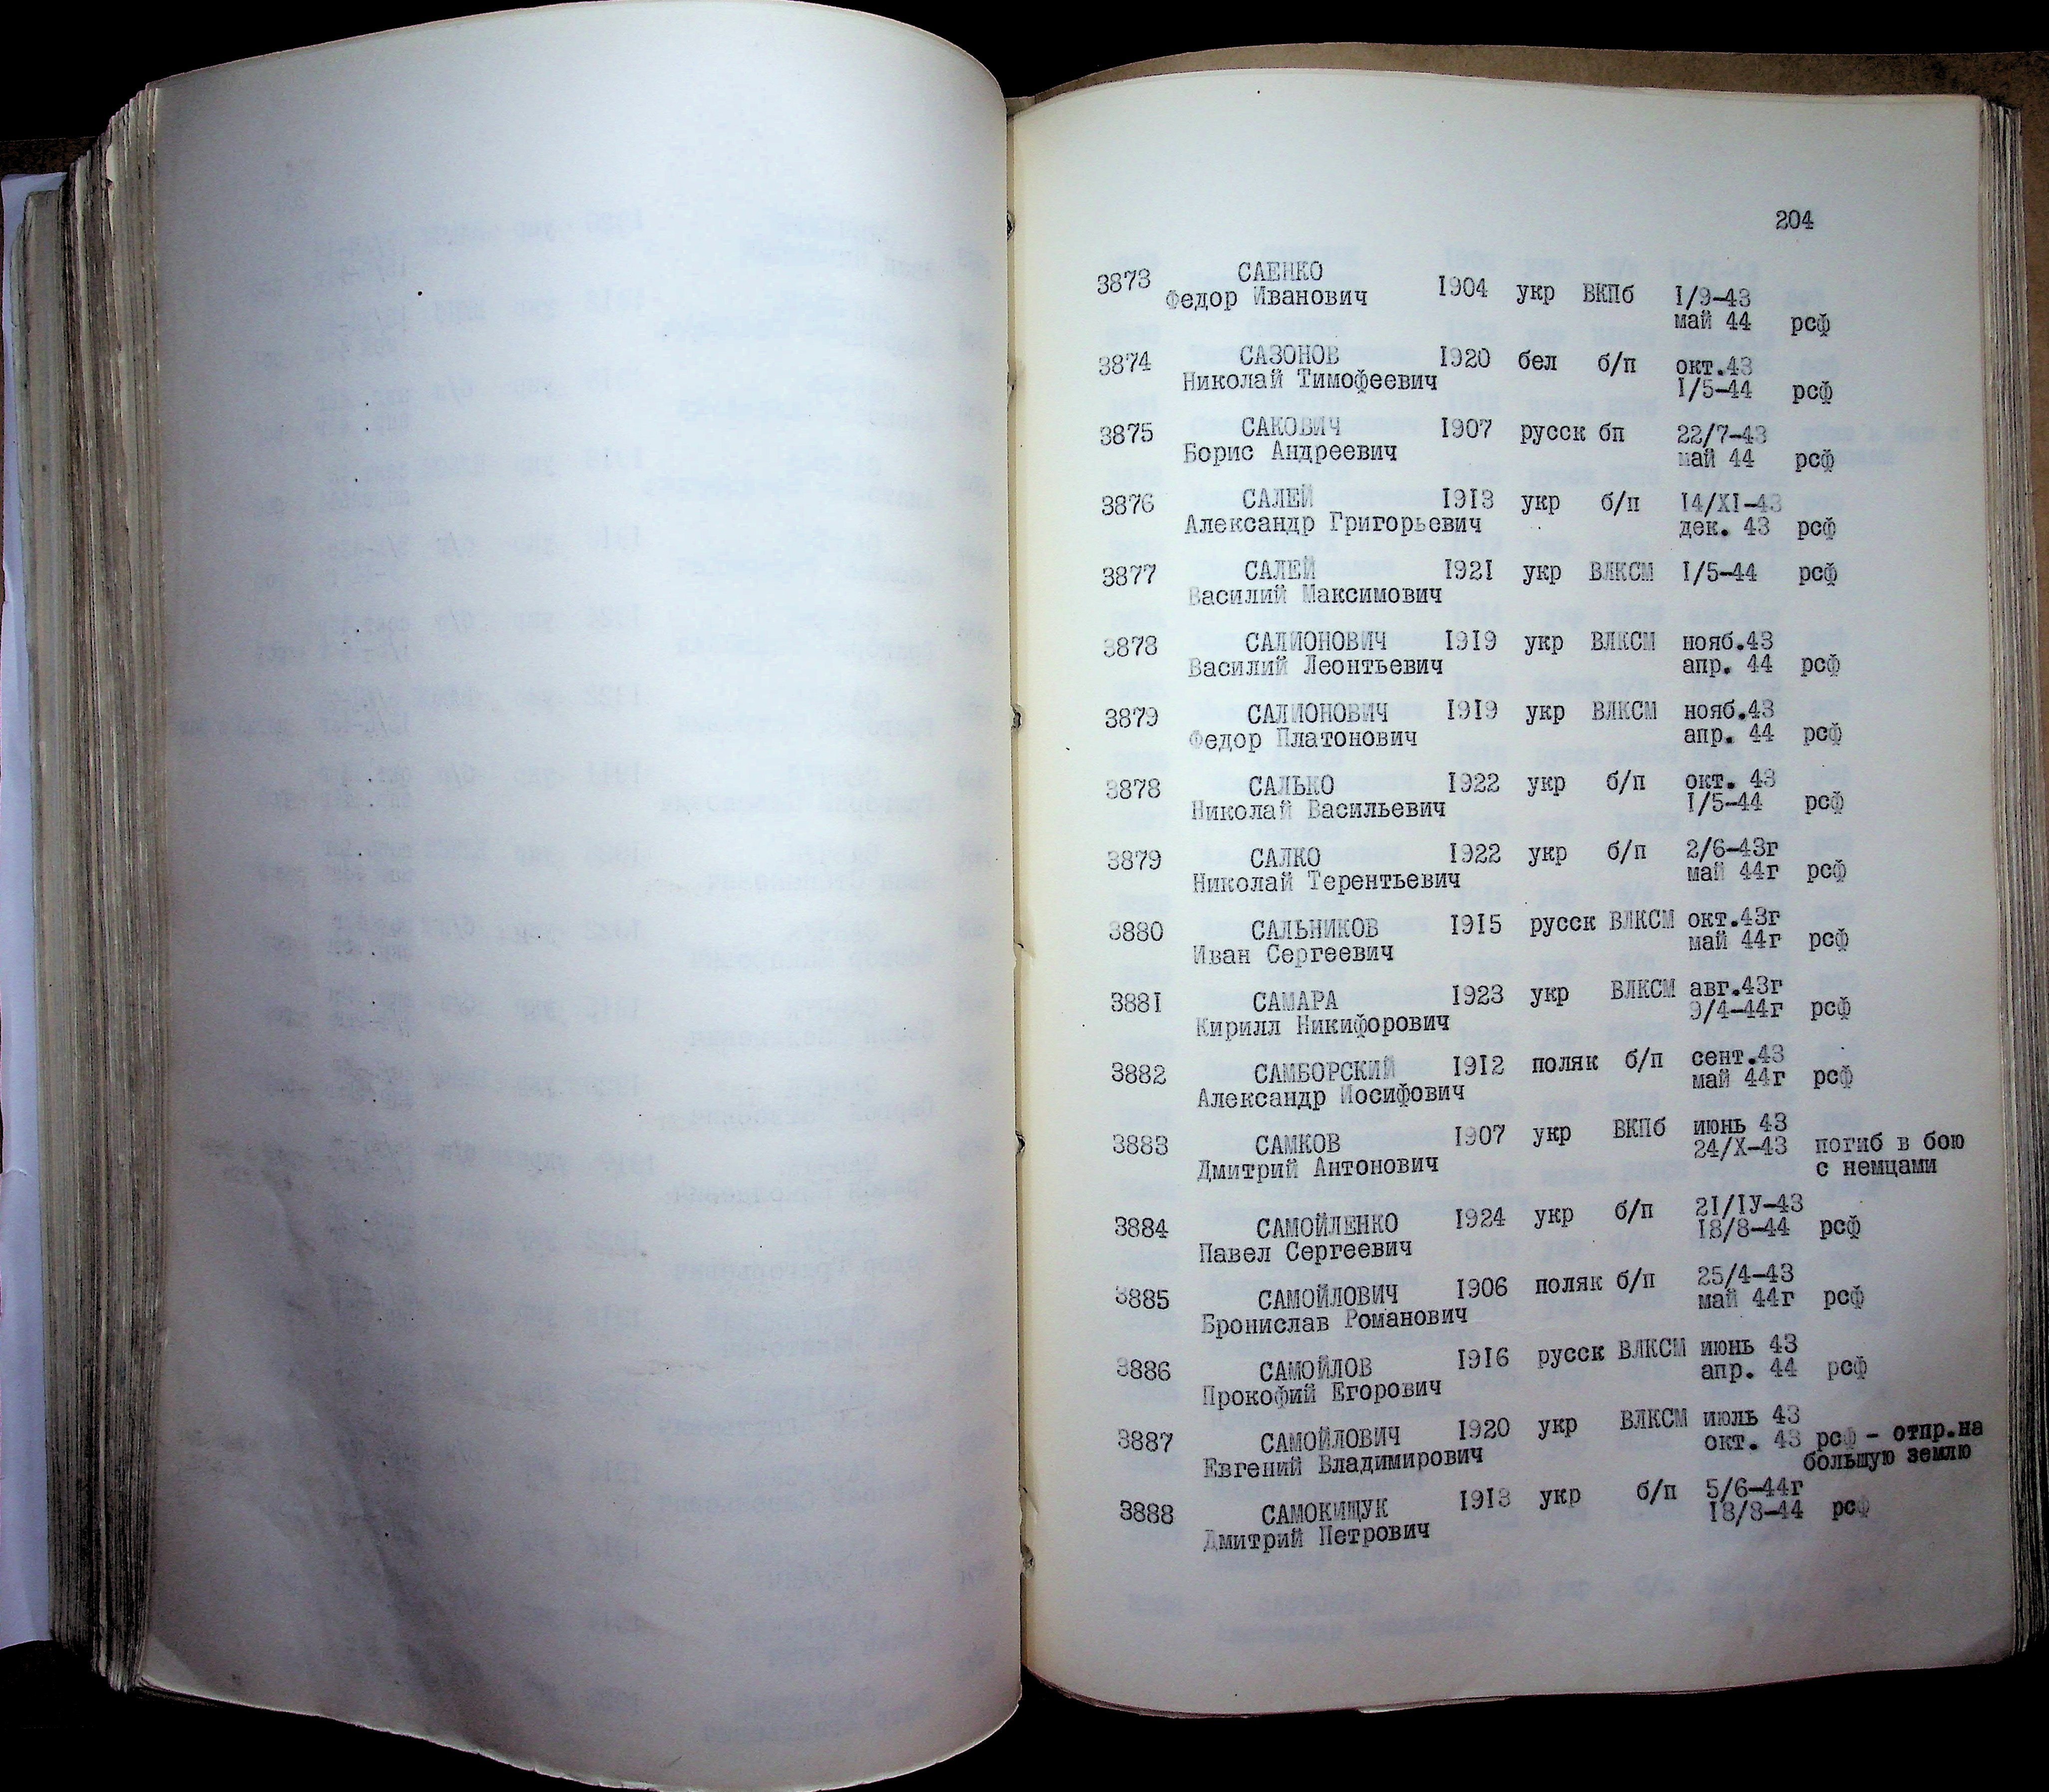 204
3873 САЕНКО 1904 укр ВКПб 1/9-43
Федор Иванович май 44 рсф
3874 САЗОНОВ 1920 бел б/п окт.43
Николай Тимофеевич 1/5-44 рсф
3875 САКОВИЧ 1907 русск бп 22/7-43
Борис Андреевич май 44 рсф
3876 САЛЕЙ 1913 укр б/п 14/XI-43
Александр Григорьевич дек. 43 рсф
3877 САЛЕЙ 1921 укр ВЛКСМ 1/5-44 рсф
Василий Максимович
3878 САЛИОНОВИЧ 1919 укр ВЛКСМ нояб.43
Василий Леонтьевич апр. 44 рсф
3879 САЛИОНОВИЧ 1919 укр ВЛКСМ нояб.43
Федор Платонович апр. 44 рсф
3878 САЛЬКО 1922 укр б/п окт. 43
Николай Васильевич 1/5-44 рсф
3879 САЛКО 1922 укр б/п 2/6-43г
Николай Терентьевич май 44г рсф
3880 САЛЬНИКОВ 1915 русск ВЛКСМ окт.43г
Иван Сергеевич май 44г рсф
3881 САМАРА 1923 укр ВЛКСМ авг.43г
Кирилл Никифорович 9/4-44г рсф
3882 САМБОРСКИЙ 1912 поляк б/п сент.43
Александр Иосифович май 44г рсф
3883 САМКОВ 1907 укр ВКПб июнь 43
Дмитрий Антонович 24/X-43 погиб в бою
с немцами
3884 САМОЙЛЕНКО 1924 укр б/п 21/IУ-43
Павел Сергеевич 18/8-44 рсф
3885 САМОЙЛОВИЧ 1906 поляк б/п 25/4-43
Бронислав Романович май 44г рсф
3886 САМОЙЛОВ 1916 русск ВЛКСМ июнь 43
Прокофий Егорович апр. 44 рсф
3887 САМОЙЛОВИЧ 1920 укр ВЛКСМ июль 43
Евгений Владимирович окт. 43 рсф - отпр.на
большую землю
3888 САМОКИЩУК 1913 укр б/п 5/6-44г
Дмитрий Петрович 18/8-44 рсф